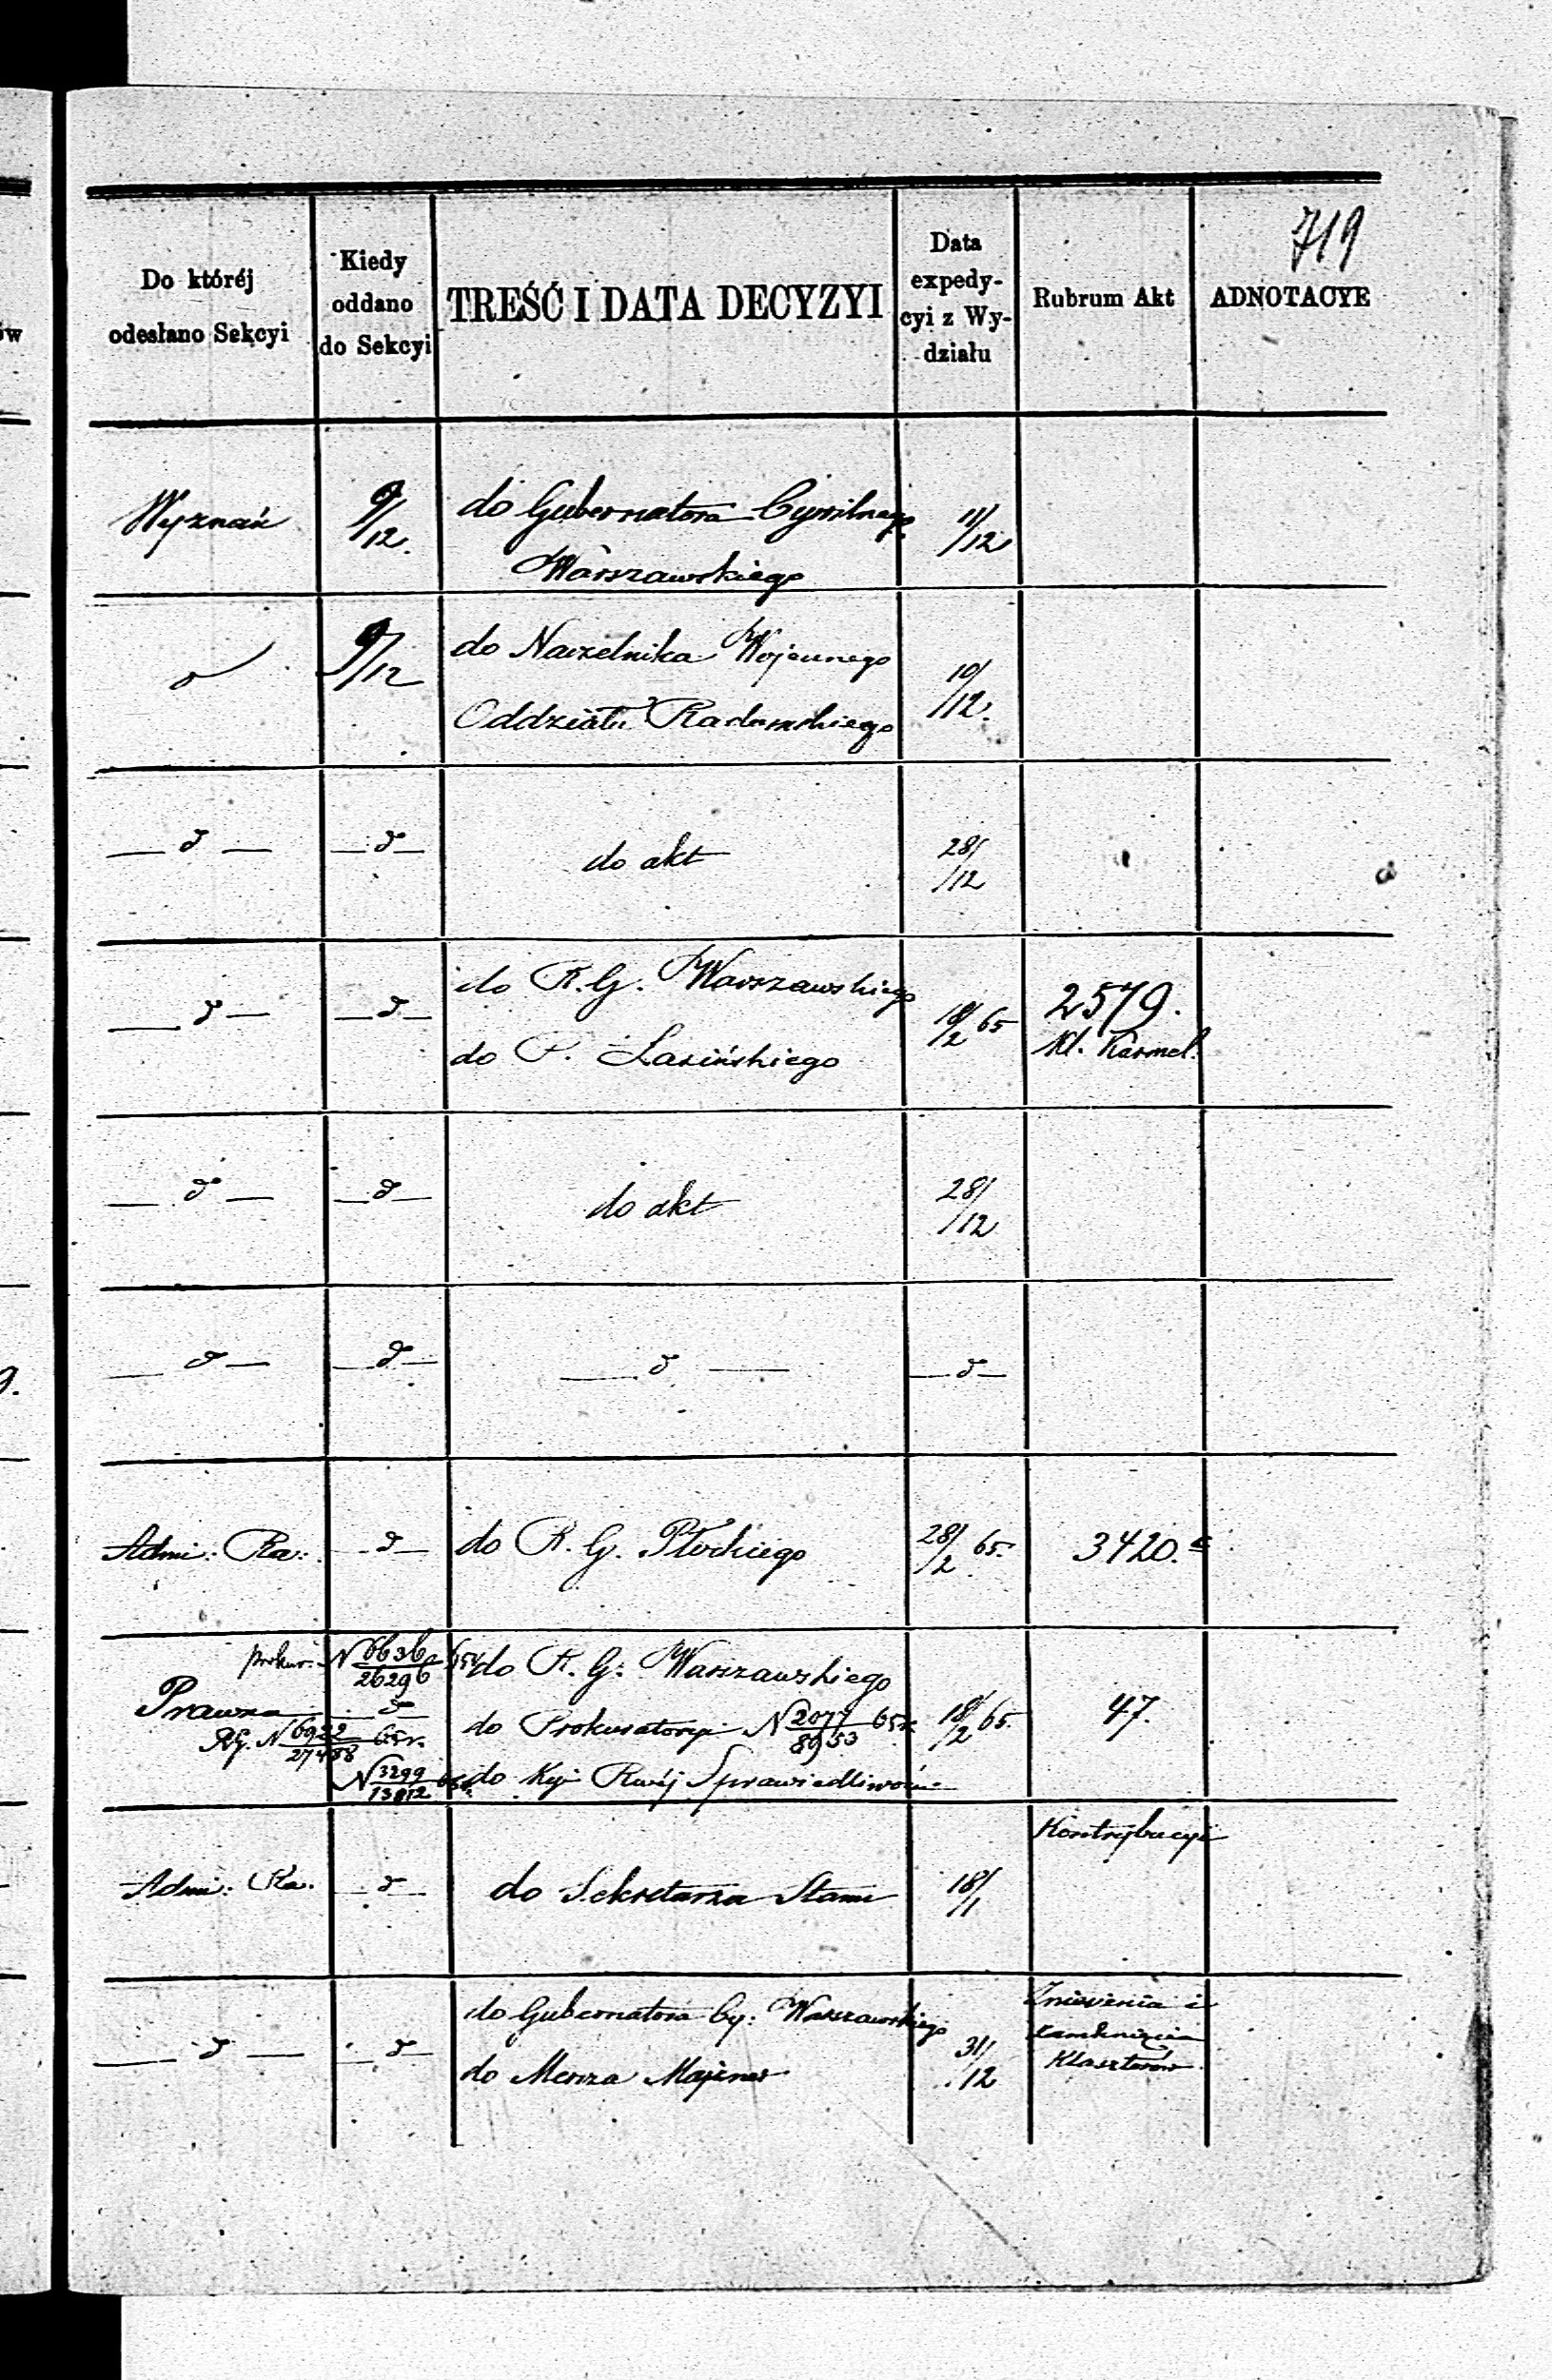 719
Do któréj
odesłano Sekcyi
Kiedy
oddano
do Sekcyi
TREŚĆ I DATA DECYZYI
Data
expedy-
cyi z Wy-
działu
Rubrum Akt
ADNOTACYE
Wyznań
9/12.
do Gubernatora Cywilnego
Warszawskiego
11/12
9/12
do Naczelnika Wojennego
Oddziału Radomskiego
10/12.
d
d
do akt
28/12
d
d
do R. G. Warszawskiego
do P. Lasińskiego
18/2 65
2579.
Kl. Karmel.
d
d
do akt
28/12
d
d
d
d
Admi: Ra:
d
do R. G. Płockiego
28/2 65.
3420.
prokur. N 6636/26296 65r
Prawna
d
RG. N 6922/27458 65r.
N 3299/13812 65r.
do R. G. Warszawskiego
do Prokuratoryi N 2077/8953 65r.
do Kyi Rwéj Sprawiedliwości
18/2 65.
47.
Admi: Ra.
d
do Sekretarza Stanu
18/1
Kontrybucyi
d
d
do Gubernatora Cy: Warszawskiego
do Menza Majenes
31/12
Zniesienia i
zamknięcia
Klasztorów